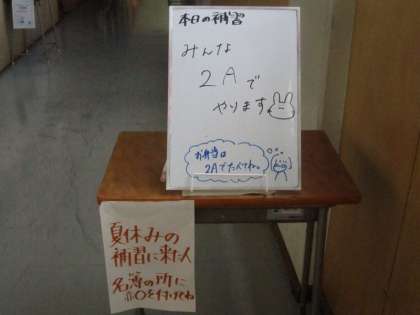 本日の補習
みんな
2Aで
やります
お弁当は
2Aでたべてね。
夏休みの
補習に来た人
名簿の所に
○を付けてね